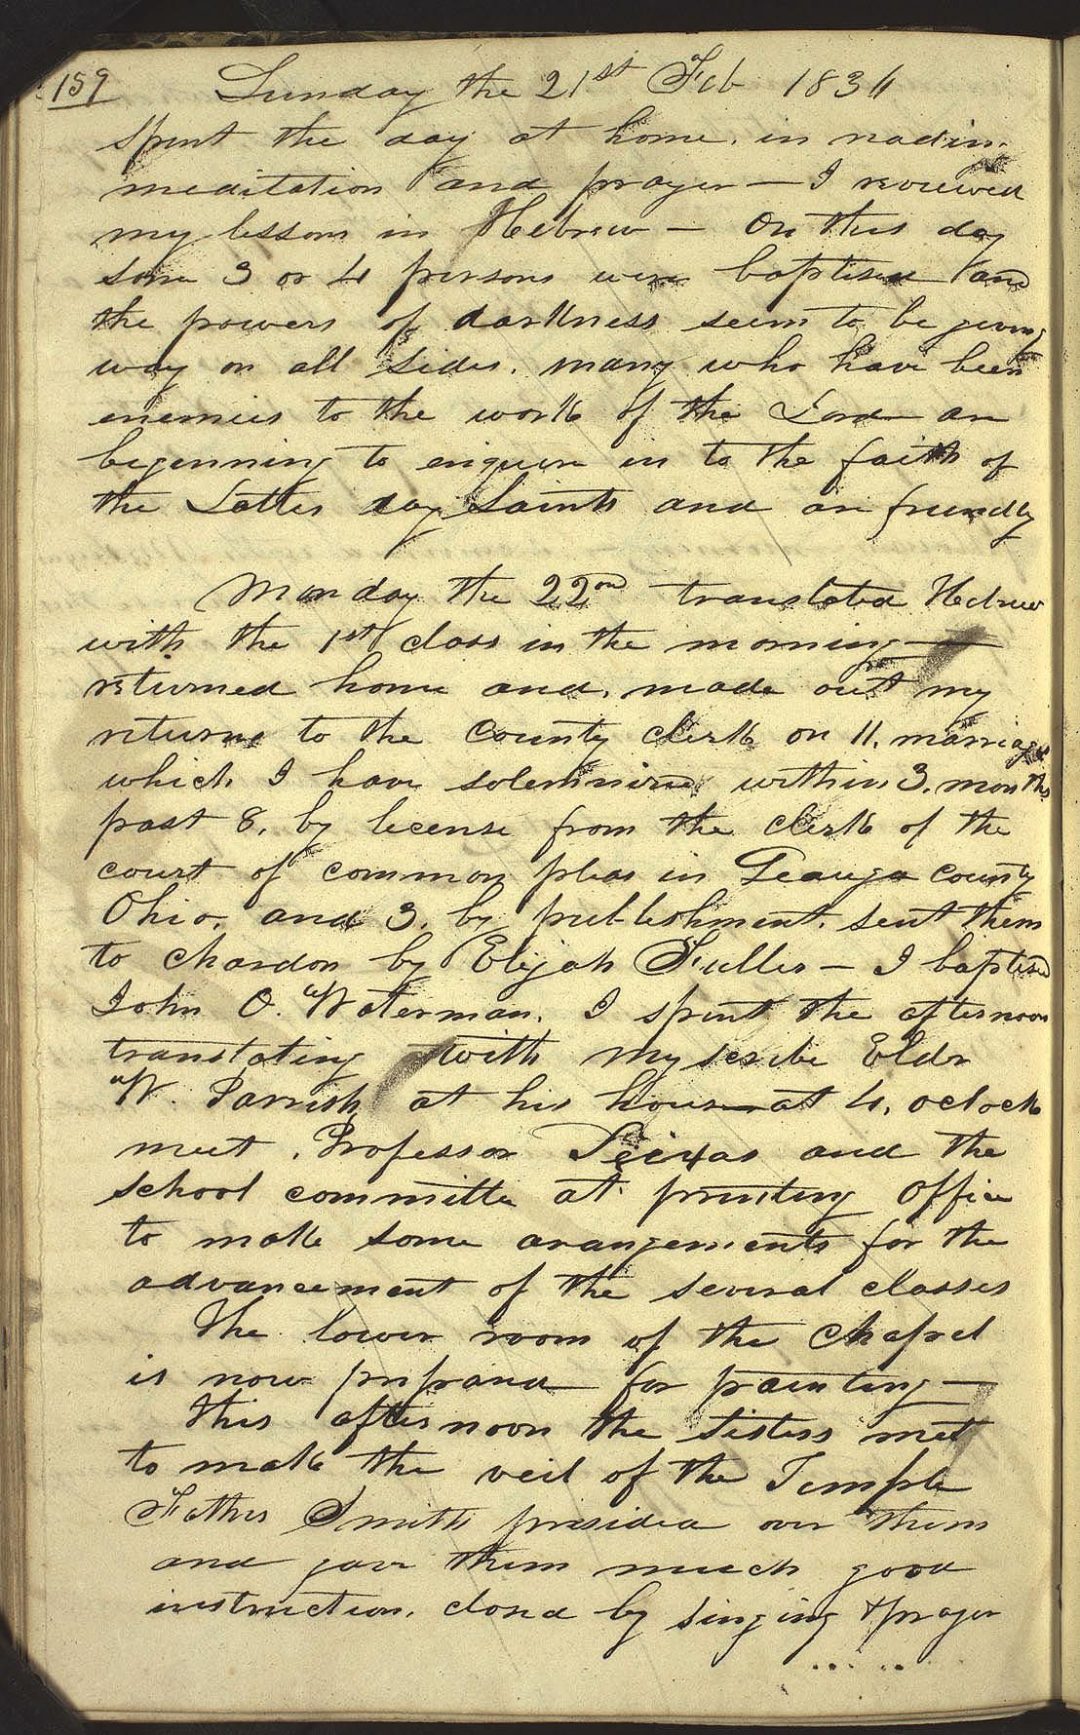 159 Sunday the 21st Feb 1836
spent the day at home, in reading
meditation and prayer — I reviewed
my lessons in Hebrew — On this day
some 3 or 4 persons were baptised and
the powers of darkness seem to be giving
way on all sides. many who have been
enemies to the work of the Lord are
beginning to enquire in to the faith of
the Latter day Saints and are friendly
Monday the 22nd translated Hebrew
with the 1st class in the morning—
returned home and, made out my
returns to the county clerk on 11. marriages
which I have solemnized within 3. months
past 8, by license from the clerk of the
court of common pleas in Geauga county
Ohio, and 3, by publishment, sent them
to chardon by Elijah Fuller — I baptised
John O. Waterman. I spent the afternoon
translating with my scribe Eldr
W. Parrish at his house at 4, oclock
meet, Professor Seixas and the
school committe at printing office
to make some arangements for the
advancement of the several classes
The lower room of the chapel
is now prepared for painting—
This afternoon the sisters met
to make the veil of the Temple
Father Smith presided over them
and gave them much good
instruction, closed by singing & prayer